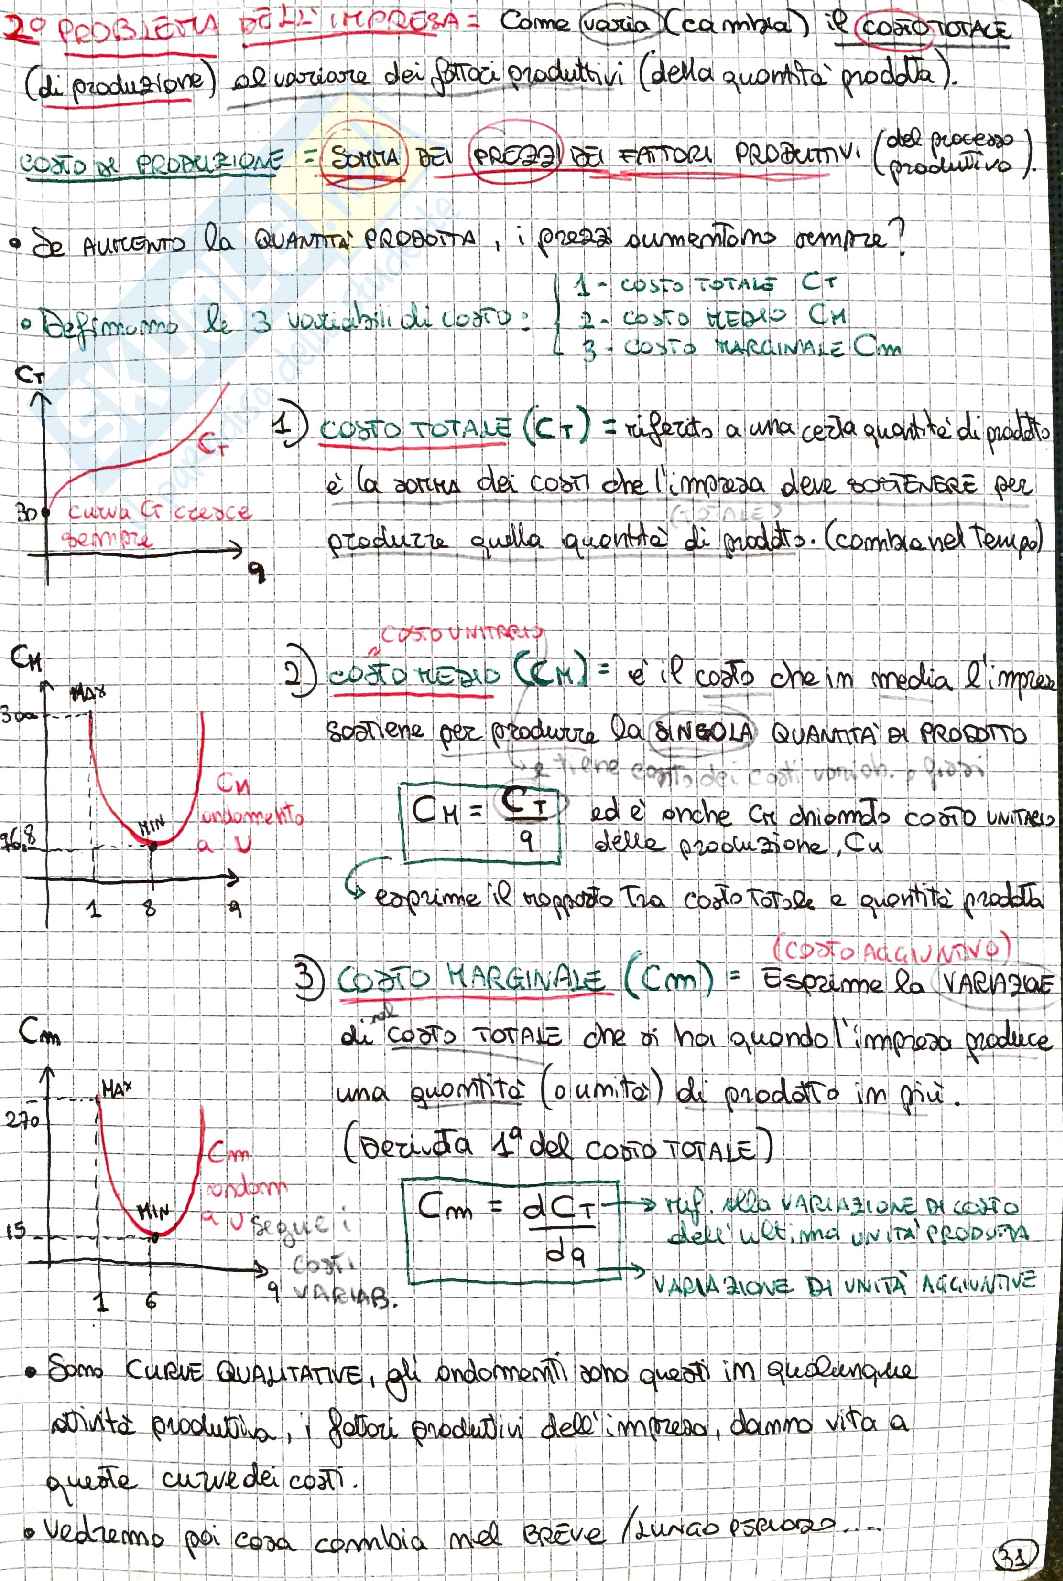 2° PROBLEMA DELL'IMPRESA = Come varia (cambia) il COSTO TOTALE
(di produzione) al variare dei fattori produttivi (della quantità prodotta).
COSTO DI PRODUZIONE = SOMMA DEI PREZZI DEI FATTORI PRODUTTIVI (del processo produttivo).
• Se AUMENTO la QUANTITÀ PRODOTTA, i prezzi aumentano sempre?
• Definiamo le 3 variabili di costo:
1- COSTO TOTALE CT
2- COSTO MEDIO CM
3- COSTO MARGINALE Cm
CT
CT
30
curva CT cresce
sempre
q
1) COSTO TOTALE (CT) = riferito a una certa quantità di prodotto
è la somma dei costi che l'impresa deve SOSTENERE per
(TOTALE)
produrre quella quantità di prodotto. (cambia nel Tempo)
COSTO UNITARIO
2) COSTO MEDIO (CM) = è il costo che in media l'impresa
sostiene per produrre la SINGOLA QUANTITÀ DI PRODOTTO
e tiene conto dei costi variab. e fissi
CM = CT / q
ed è anche CM chiamato COSTO UNITARIO
della produzione, Cu
esprime il rapporto Tra costo Totale e quantità prodotta
CM
MAX
300
CM
andamento
a U
MIN
96,8
1 8 q
(COSTO AGGIUNTIVO)
3) COSTO MARGINALE (Cm) = Esprime la VARIAZIONE
nel
di COSTO TOTALE che si ha quando l'impresa produce
una quantità (o unità) di prodotto in più.
(Derivata 1ª del COSTO TOTALE)
Cm = dCT / dq
rif. alla VARIAZIONE DI COSTO
dell'ultima UNITÀ PRODOTTA
VARIAZIONE DI UNITÀ AGGIUNTIVE
Cm
MAX
270
Cm
andam
a U segue i
costi
VARIAB.
MIN
15
1 6 q
• Sono CURVE QUALITATIVE, gli andamenti sono questi in qualunque
attività produttiva, i fattori produttivi dell'impresa, danno vita a
queste curve dei costi.
• Vedremo poi cosa cambia nel BREVE / LUNGO PERIODO....
31